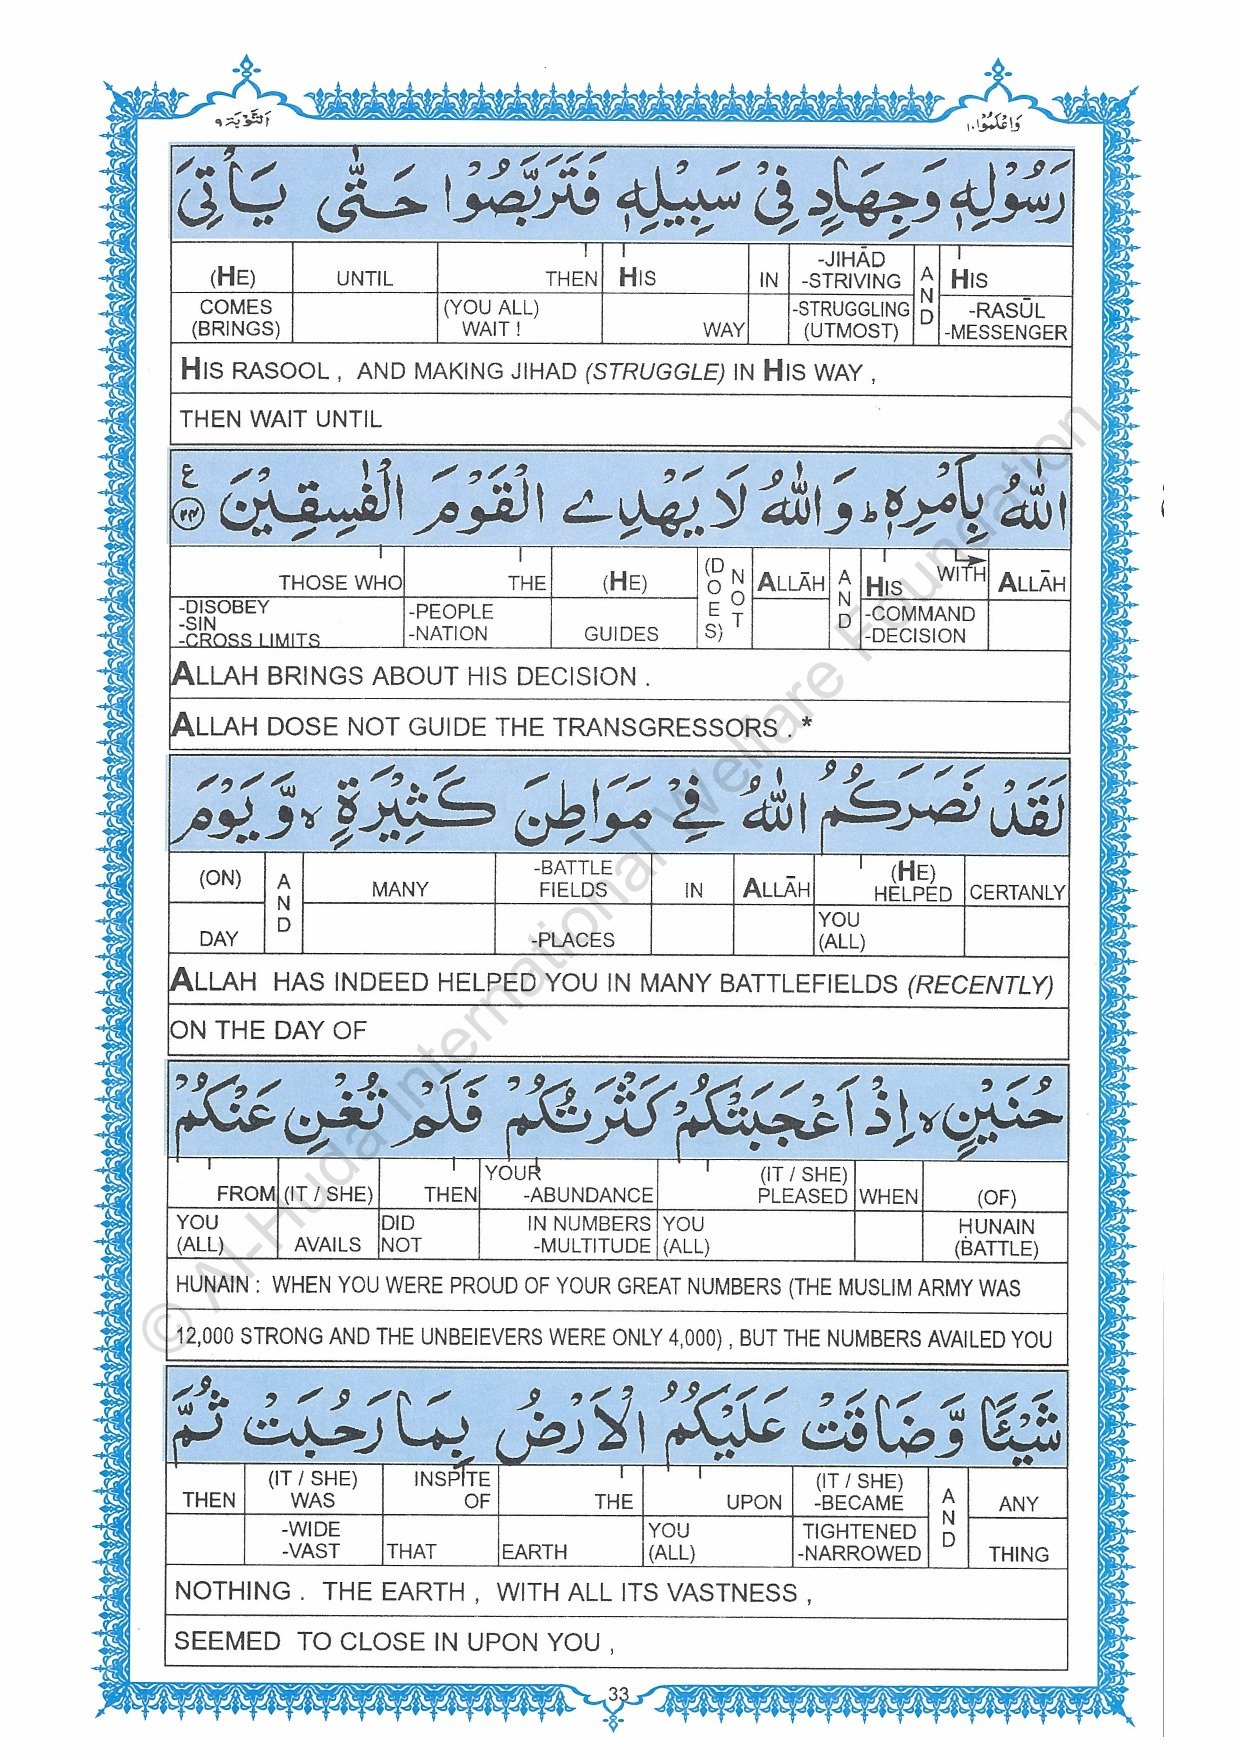 اَلتَّوْبَة ٩
وَاعْلَمُوْا ١٠
رَسُوْلِهٖ وَجِهَادٍ فِيْ سَبِيْلِهٖ فَتَرَبَّصُوْا حَتّٰى يَاْتِيَ
(HE) UNTIL THEN HIS IN -JIHĀD -STRIVING AND HIS
COMES (BRINGS) (YOU ALL) WAIT ! WAY -STRUGGLING (UTMOST) -RASŪL -MESSENGER
HIS RASOOL , AND MAKING JIHAD (STRUGGLE) IN HIS WAY ,
THEN WAIT UNTIL
اللّٰهُ بِاَمْرِهٖ ؕ وَاللّٰهُ لَا يَهْدِے الْقَوْمَ الْفٰسِقِيْنَ ٢٤ ع
THOSE WHO THE (HE) (DOES) NOT ALLĀH AND HIS WITH ALLĀH
-DISOBEY -SIN -CROSS LIMITS -PEOPLE -NATION GUIDES -COMMAND -DECISION
ALLAH BRINGS ABOUT HIS DECISION .
ALLAH DOSE NOT GUIDE THE TRANSGRESSORS . *
لَقَدْ نَصَرَكُمُ اللّٰهُ فِيْ مَوَاطِنَ كَثِيْرَةٍ ۙ وَّيَوْمَ
(ON) AND MANY -BATTLE FIELDS IN ALLĀH (HE) HELPED CERTANLY
DAY -PLACES YOU (ALL)
ALLAH HAS INDEED HELPED YOU IN MANY BATTLEFIELDS (RECENTLY)
ON THE DAY OF
حُنَيْنٍ ۙ اِذْ اَعْجَبَتْكُمْ كَثْرَتُكُمْ فَلَمْ تُغْنِ عَنْكُمْ
FROM (IT / SHE) THEN YOUR -ABUNDANCE (IT / SHE) PLEASED WHEN (OF)
YOU (ALL) AVAILS DID NOT IN NUMBERS -MULTITUDE YOU (ALL) HUNAIN (BATTLE)
HUNAIN : WHEN YOU WERE PROUD OF YOUR GREAT NUMBERS (THE MUSLIM ARMY WAS
12,000 STRONG AND THE UNBEIEVERS WERE ONLY 4,000) , BUT THE NUMBERS AVAILED YOU
شَيْـًٔا وَّضَاقَتْ عَلَيْكُمُ الْاَرْضُ بِمَا رَحُبَتْ ثُمَّ
THEN (IT / SHE) WAS INSPITE OF THE UPON (IT / SHE) -BECAME AND ANY
-WIDE -VAST THAT EARTH YOU (ALL) TIGHTENED -NARROWED THING
NOTHING . THE EARTH , WITH ALL ITS VASTNESS ,
SEEMED TO CLOSE IN UPON YOU ,
33
© Al-Huda International Welfare Foundation